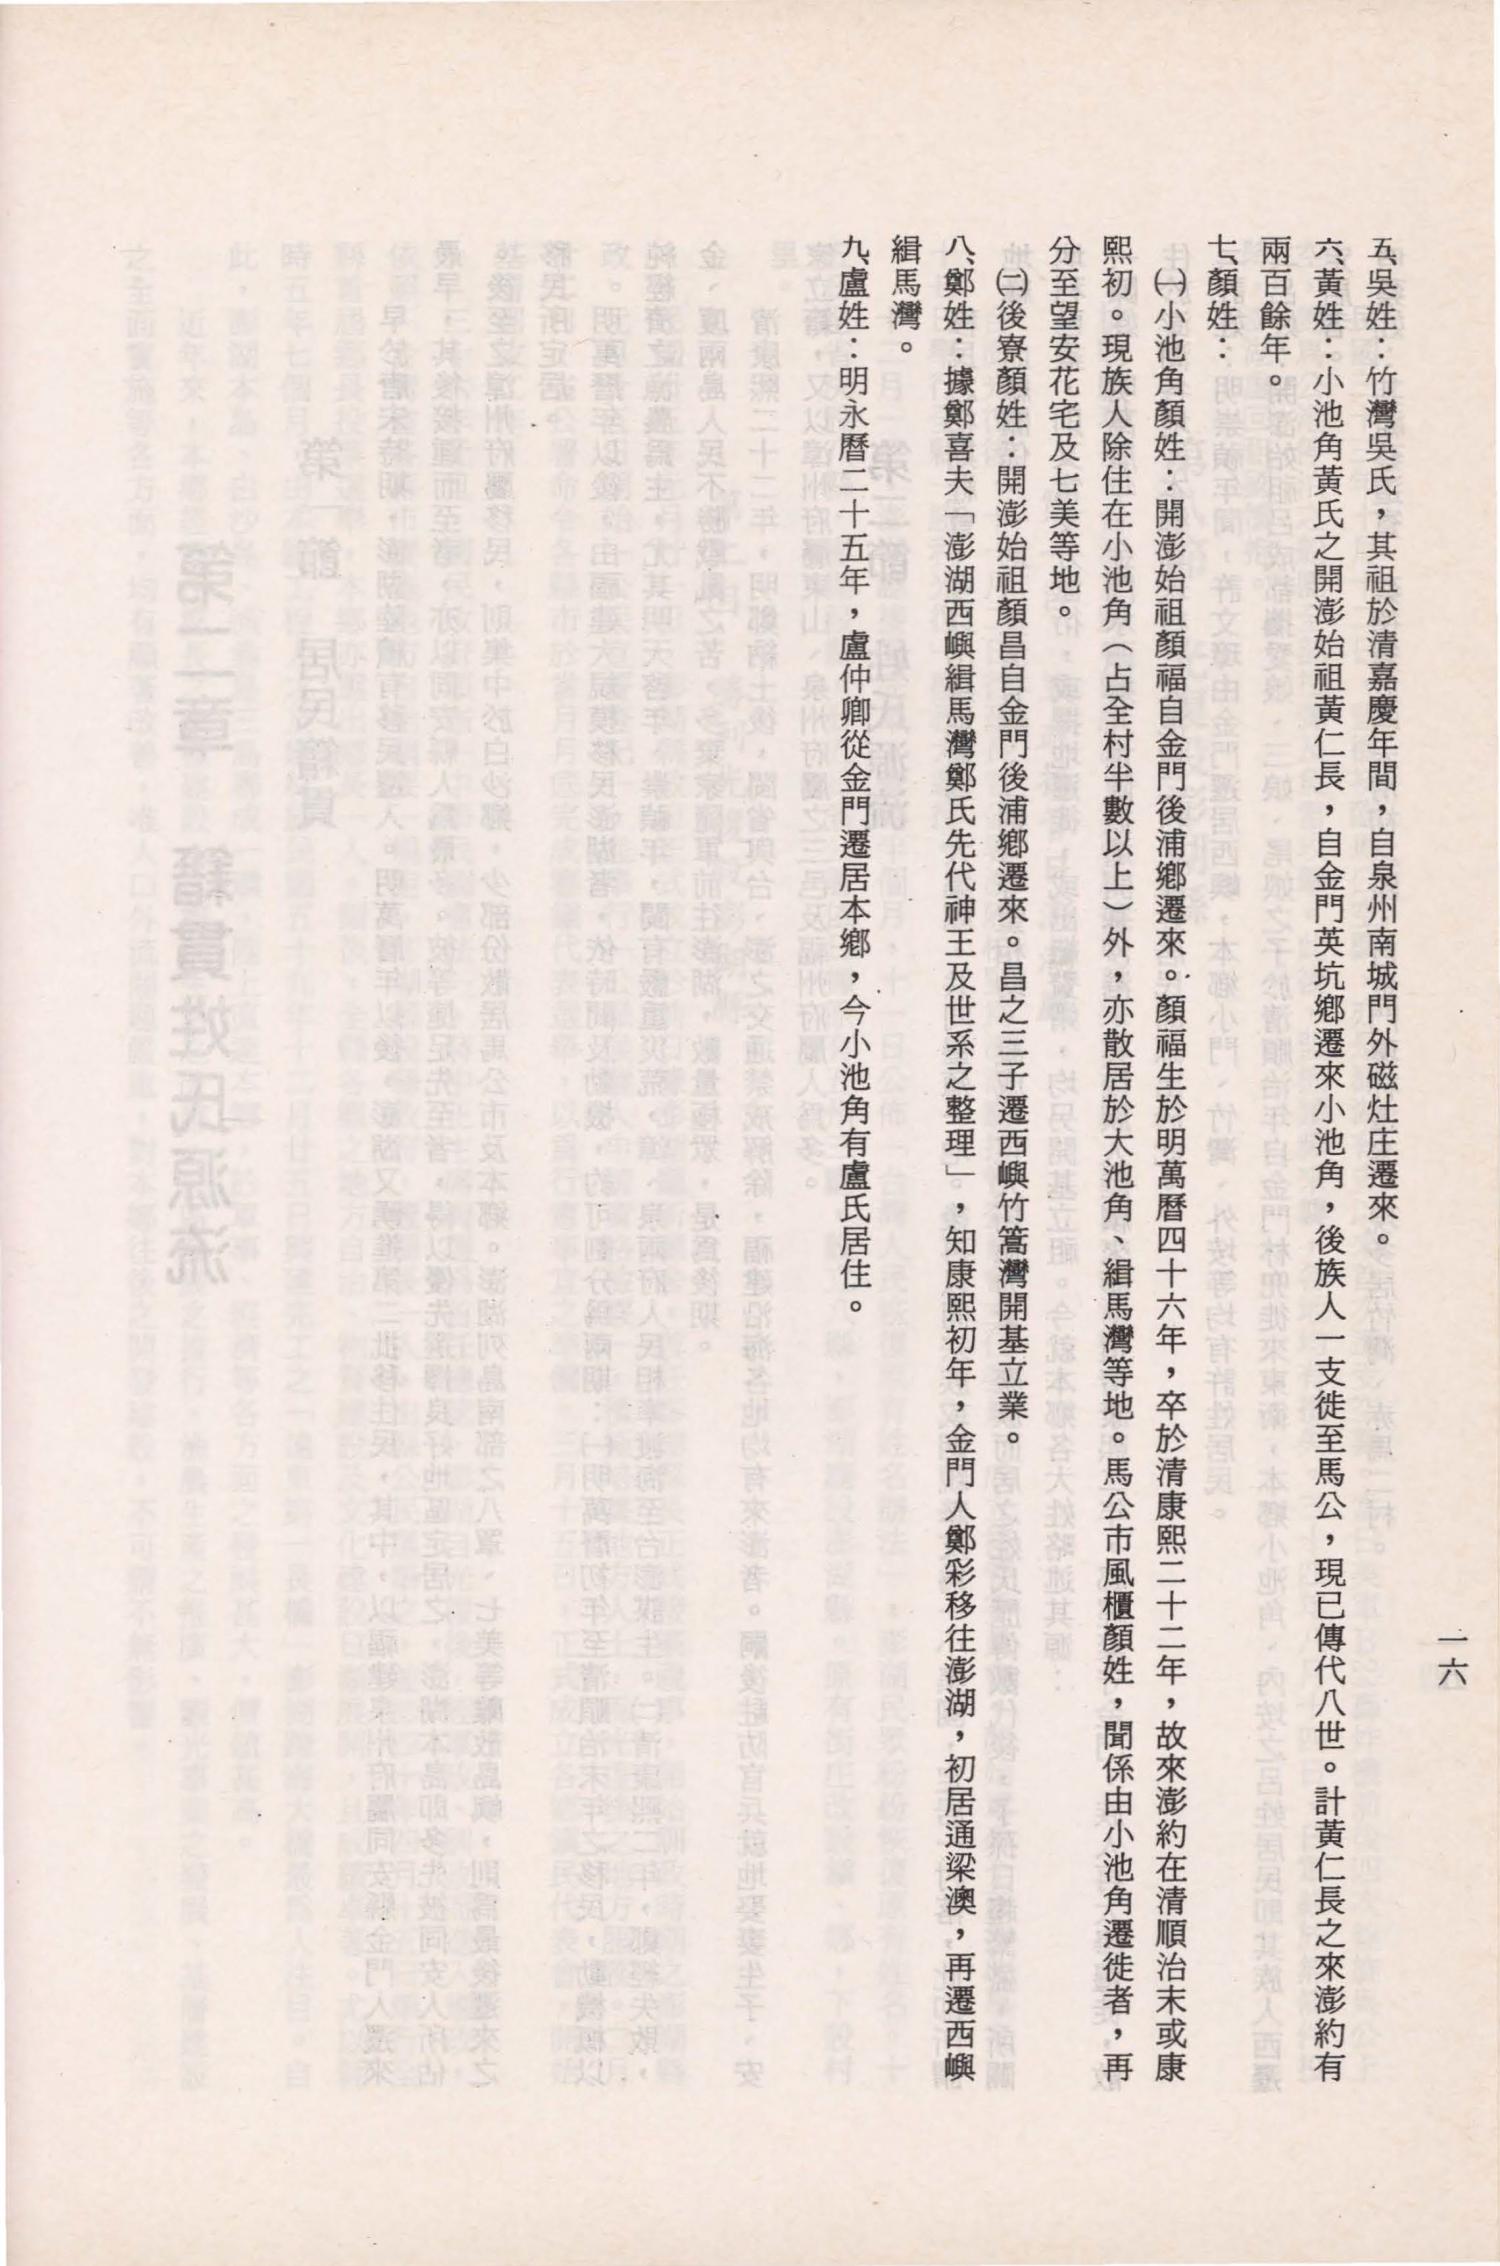 五、吳姓：竹灣吳氏，其祖於清嘉慶年間，自泉州南城門外磁灶庄遷來。
六、黃姓：小池角黃氏之開澎始祖黃仁長，自金門英坑鄉遷來小池角，後族人一支徙至馬公，現已傳代八世。計黃仁長之來澎約有
兩百餘年。
七、顏姓：
㈠小池角顏姓：開澎始祖顏福自金門後浦鄉遷來。顏福生於明萬曆四十六年，卒於清康熙二十二年，故來澎約在清順治末或康
熙初。現族人除住在小池角（占全村半數以上）外，亦散居於大池角、緝馬灣等地。馬公市風櫃顏姓，聞係由小池角遷徙者，再
分至望安花宅及七美等地。
㈡後寮顏姓：開澎始祖顏昌自金門後浦鄉遷來。昌之三子遷西嶼竹篙灣開基立業。
八、鄭姓：據鄭喜夫「澎湖西嶼緝馬灣鄭氏先代神王及世系之整理」，知康熙初年，金門人鄭彩移往澎湖，初居通梁澳，再遷西嶼
緝馬灣。
九、盧姓：明永曆二十五年，盧仲卿從金門遷居本鄉，今小池角有盧氏居住。
一六